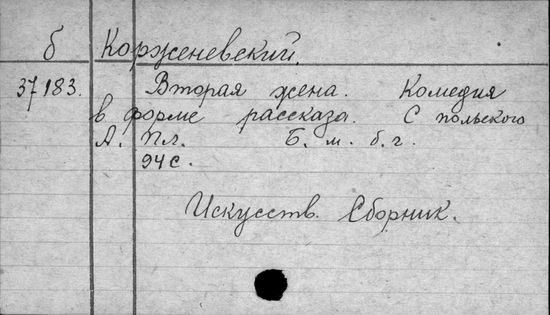 б Корженевский.
37183. Вторая жена. Комедия
в форме рассказа. С польского
А. Пл. Б. м. б. г.
94 с.
Искусств. Сборник.